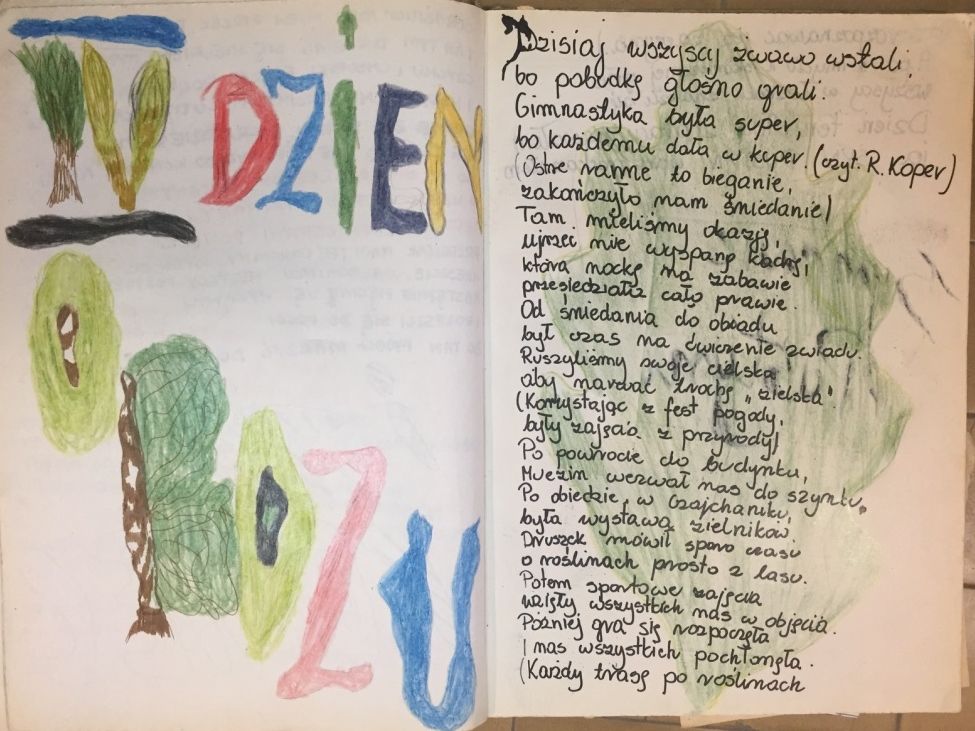 IV DZIEŃ
OBOZU
Dzisiaj wszyscy żwawo wstali,
bo pobudkę głośno grali.
Gimnastyka była super,
bo każdemu dała w kuper. (czyt. R. Koper)
(Ostre ranne to bieganie,
zakończyło nam śniadanie)
Tam mieliśmy okazję,
ujrzeć nie wyspaną Kachę,
która nockę na zabawie
przesiedziała całą prawie.
Od śniadania do obiadu
był czas na ćwiczenie zwiadu.
Ruszyliśmy swoje cielska
aby narwać trochę "zielska".
(Korzystając z fest pogody,
były zajęcia z przyrody)
Po powrocie do budynku,
Muezin wezwał nas do szynku.
Po obiedzie, w Czajchaniku,
była wystawa zielników.
Druszek mówił sporo czasu
o roślinach prosto z lasu.
Potem sportowe zajęcia
wzięły wszystkich nas w objęcia.
Później gra się rozpoczęła
i nas wszystkich pochłonęła.
(Każdy trasę po roślinach